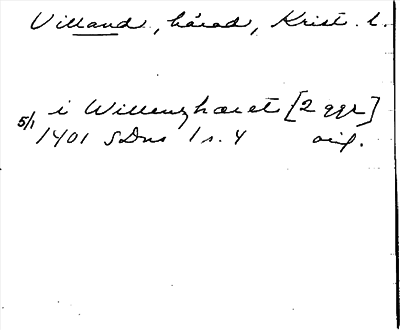 Villand, härad, Krist. l.
i Willenghæret [2 ggr]
5/1 1401 SDns 1 s. 4 orig.